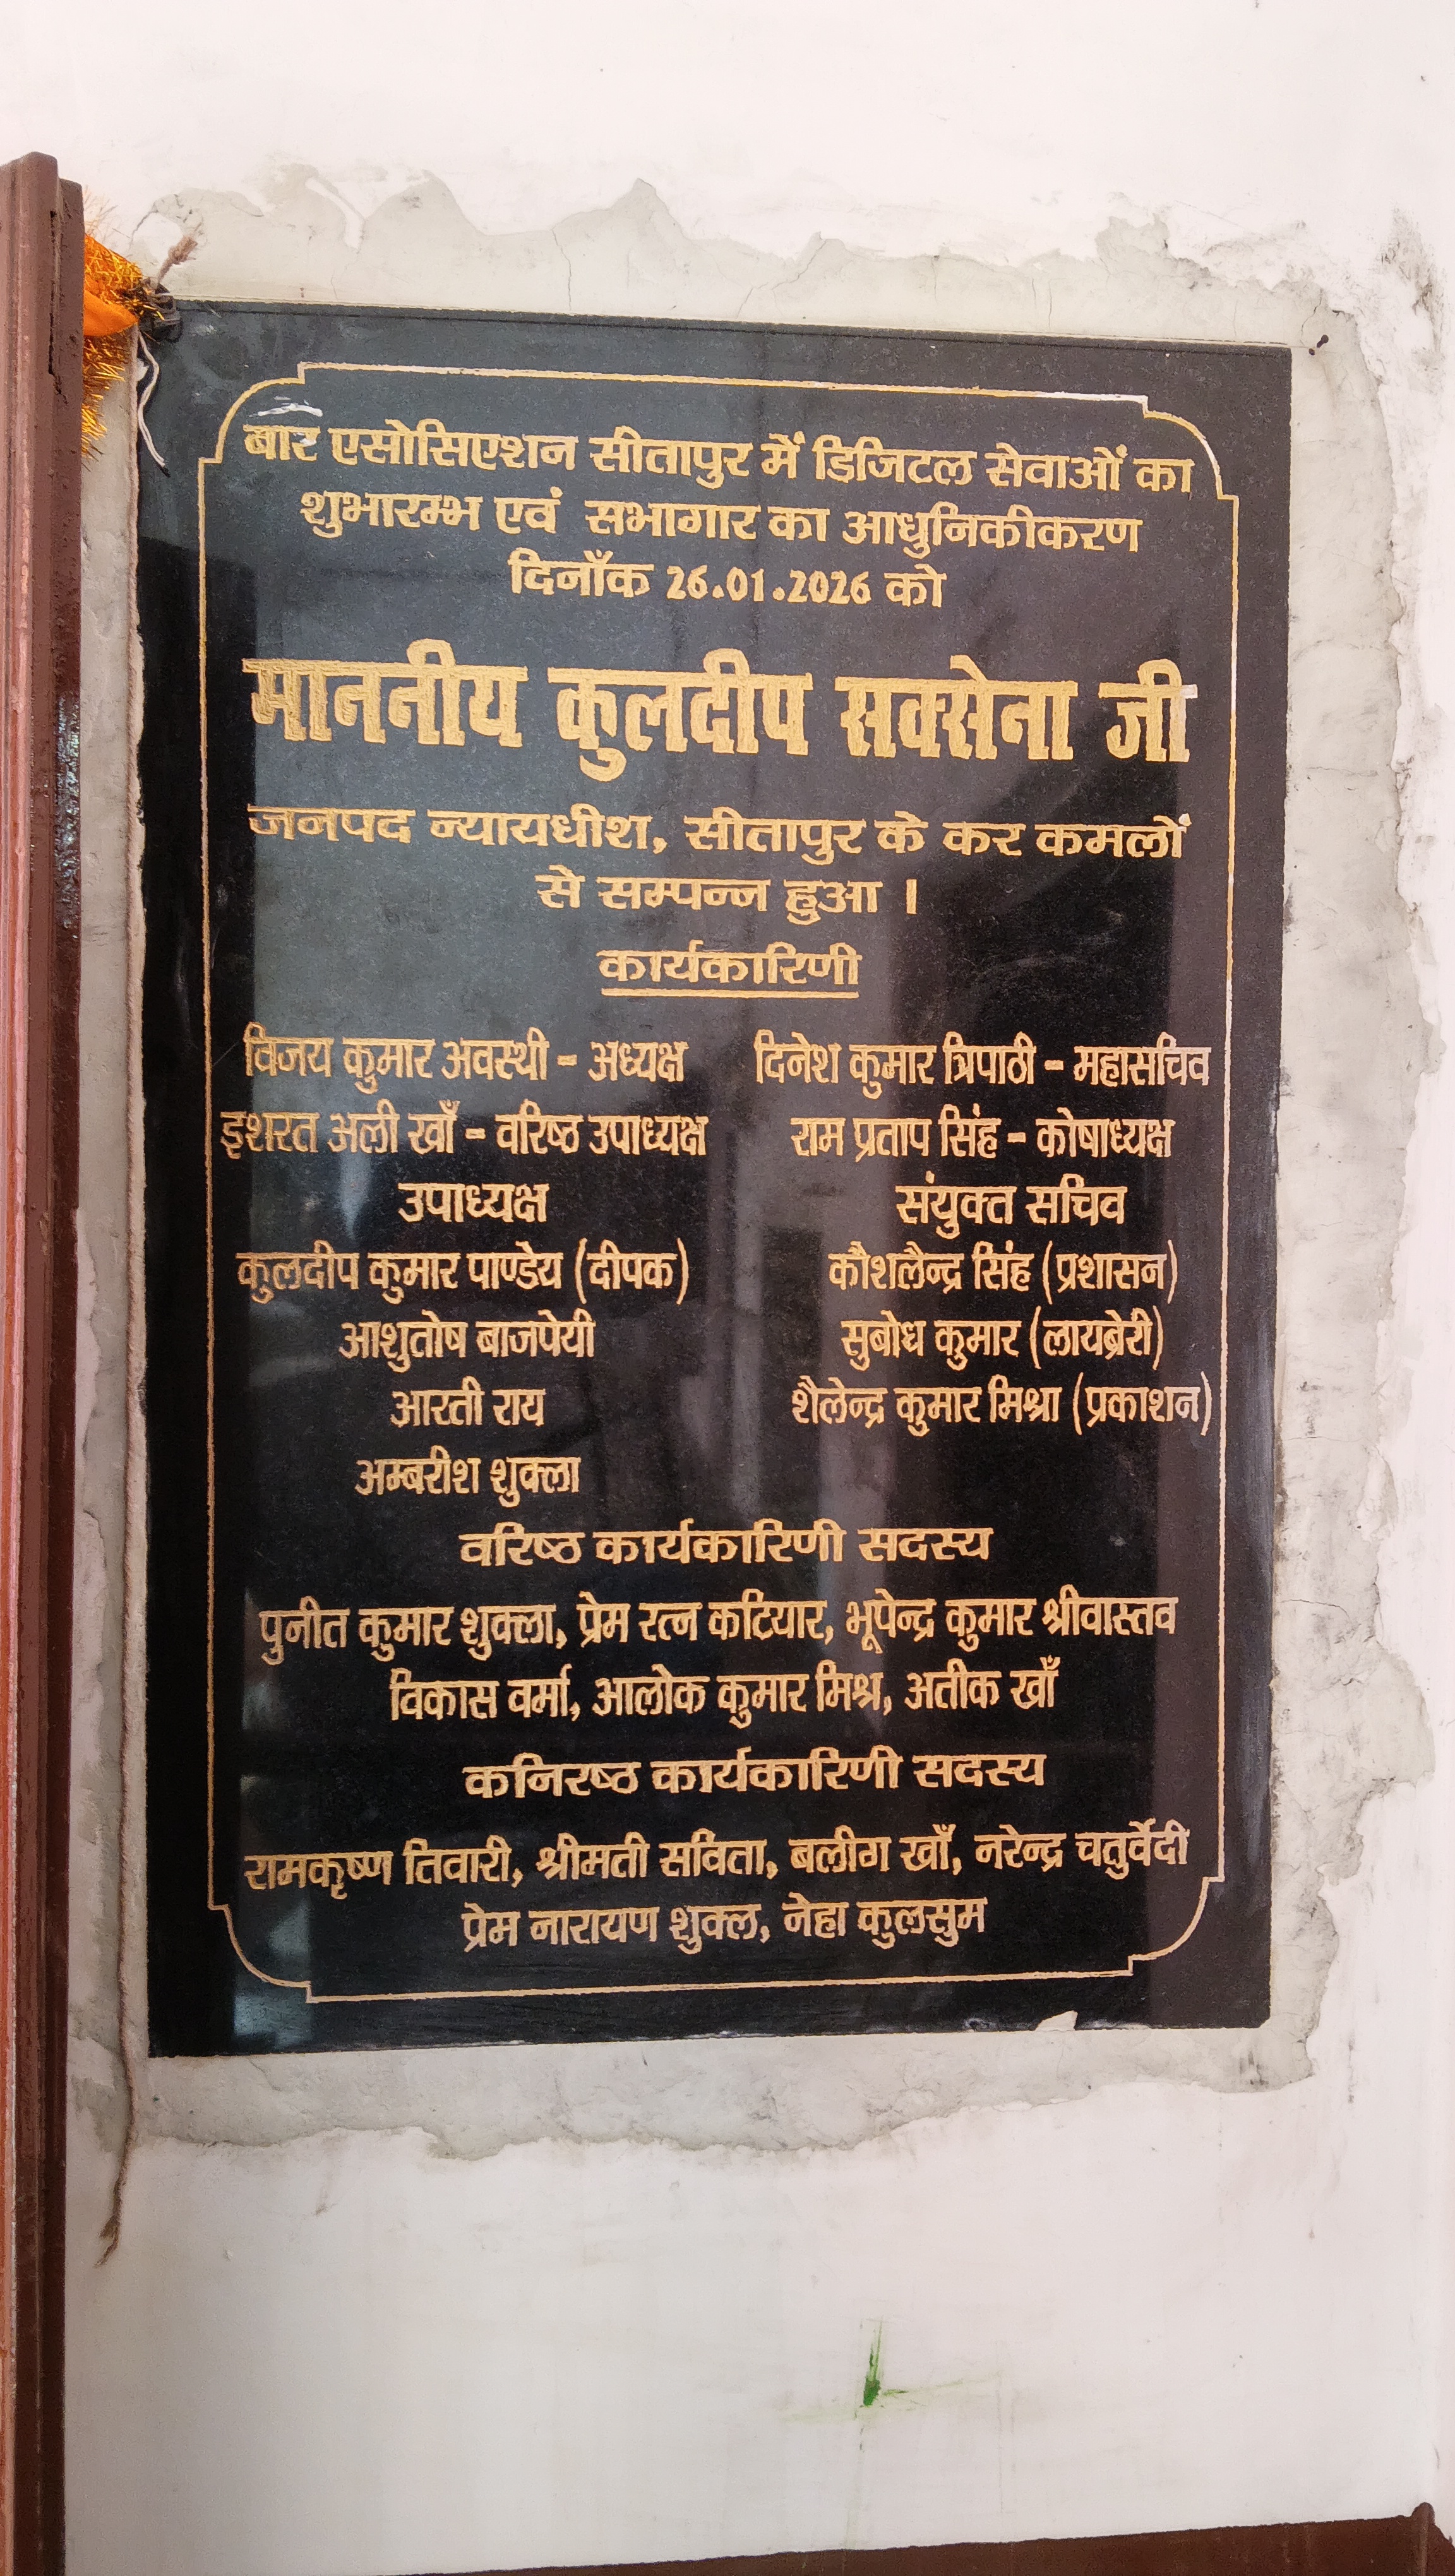 बार एसोसिएशन सीतापुर में डिजिटल सेवाओं का
शुभारम्भ एवं सभागार का आधुनिकीकरण
दिनाँक 26.01.2026 को
माननीय कुलदीप सक्सेना जी
जनपद न्यायधीश, सीतापुर के कर कमलों
से सम्पन्न हुआ ।
कार्यकारिणी
विजय कुमार अवस्थी - अध्यक्ष दिनेश कुमार त्रिपाठी - महासचिव
इशरत अली खाँ - वरिष्ठ उपाध्यक्ष राम प्रताप सिंह - कोषाध्यक्ष
उपाध्यक्ष संयुक्त सचिव
कुलदीप कुमार पाण्डेय (दीपक) कौशलैन्द्र सिंह (प्रशासन)
आशुतोष बाजपेयी सुबोध कुमार (लायब्रेरी)
आरती राय शैलेन्द्र कुमार मिश्रा (प्रकाशन)
अम्बरीश शुक्ला
वरिष्ठ कार्यकारिणी सदस्य
पुनीत कुमार शुक्ला, प्रेम रत्न कटियार, भूपेन्द्र कुमार श्रीवास्तव
विकास वर्मा, आलोक कुमार मिश्र, अतीक खाँ
कनिरष्ठ कार्यकारिणी सदस्य
रामकृष्ण तिवारी, श्रीमती सविता, बलीग खाँ, नरेन्द्र चतुर्वेदी
प्रेम नारायण शुक्ल, नेहा कुलसुम